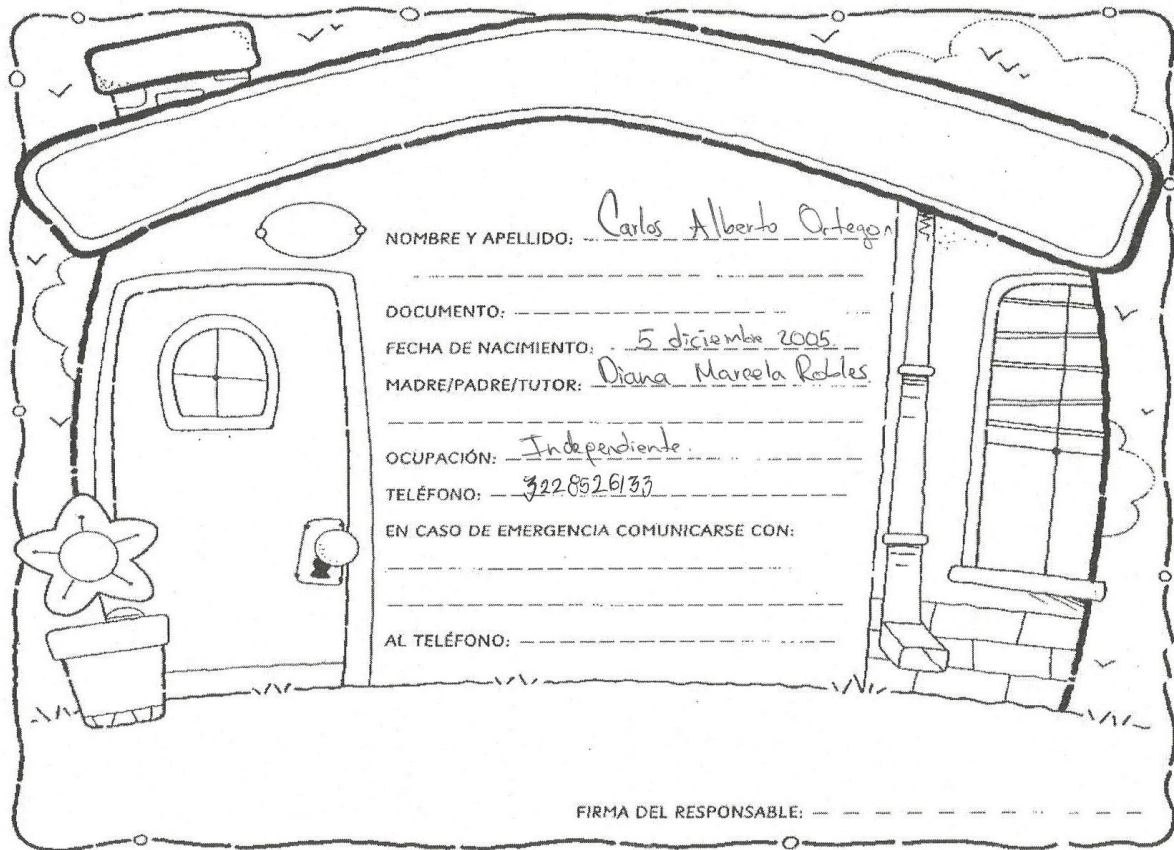 NOMBRE Y APELLIDO: Carlos Alberto Ortegon
DOCUMENTO:
FECHA DE NACIMIENTO: 5 diciembre 2005.
MADRE/PADRE/TUTOR: Diana Marcela Robles
OCUPACIÓN: Independiente.
TELÉFONO: 3228526133
EN CASO DE EMERGENCIA COMUNICARSE CON:
AL TELÉFONO:
FIRMA DEL RESPONSABLE: